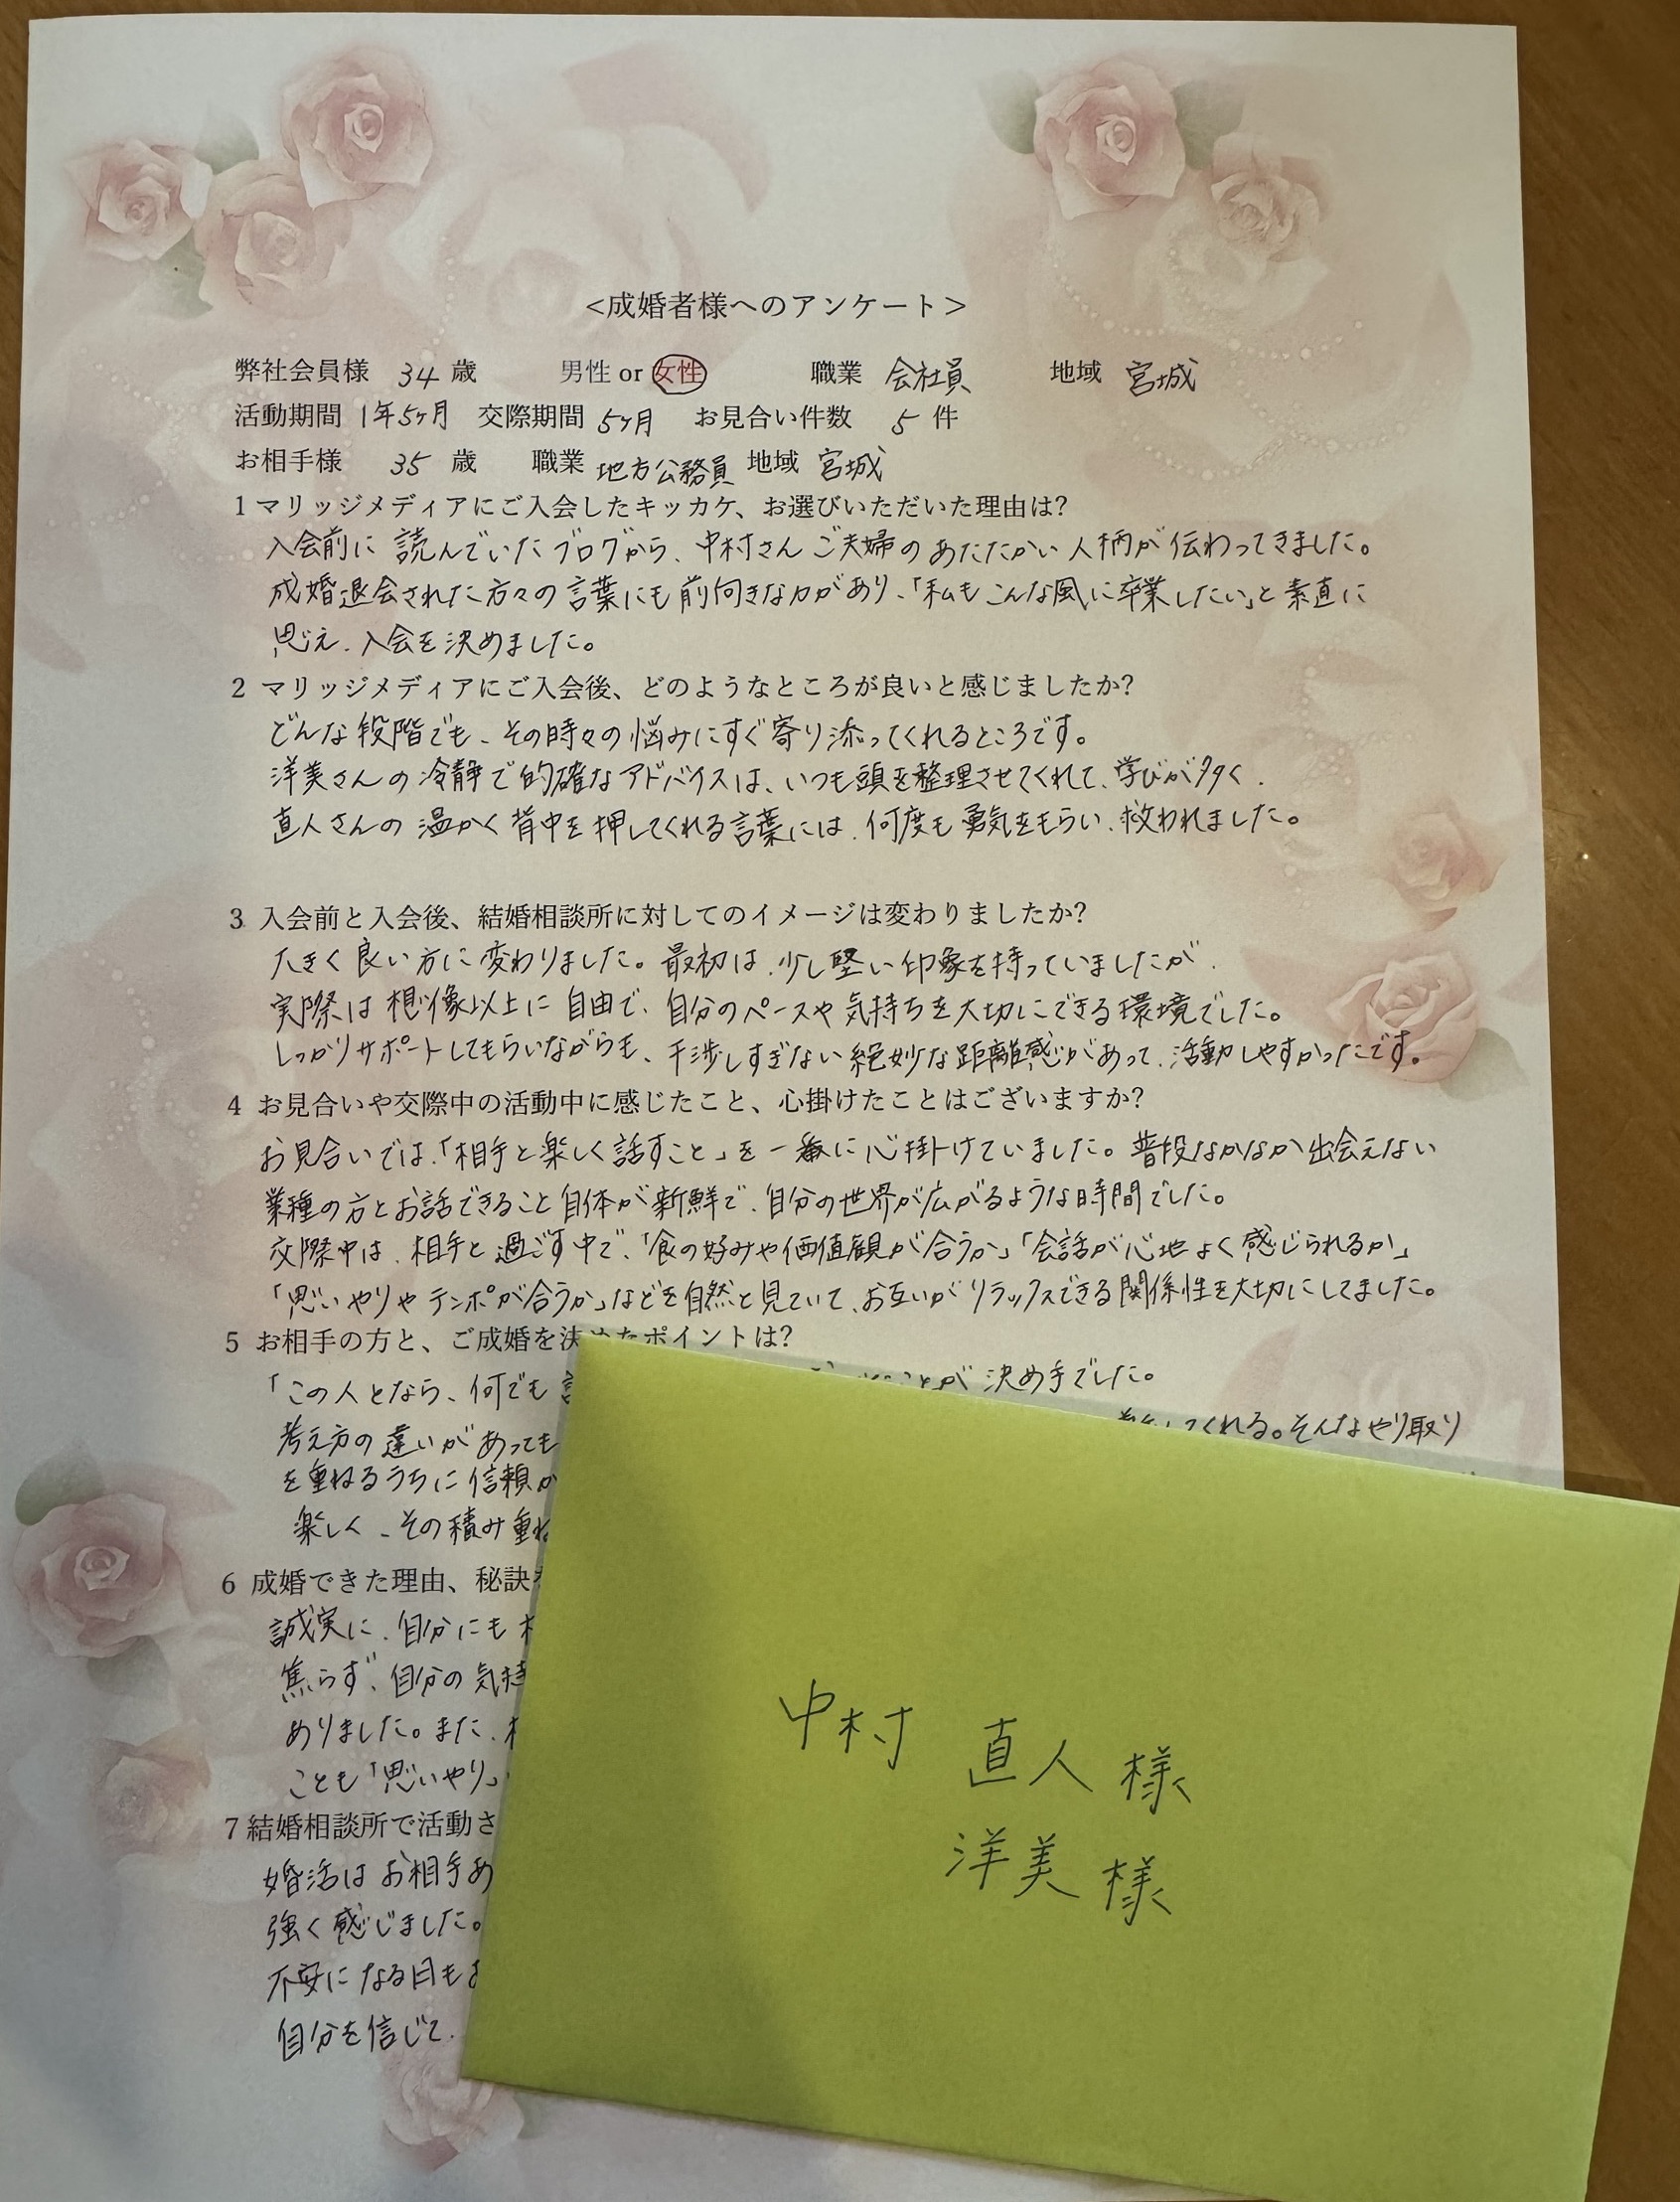 <成婚者様へのアンケート>
弊社会員様 34 歳 男性 or 女性 職業 会社員 地域 宮城
活動期間 1年5ヶ月 交際期間 5ヶ月 お見合い件数 5 件
お相手様 35 歳 職業 地方公務員 地域 宮城
1 マリッジメディアにご入会したキッカケ、お選びいただいた理由は?
入会前に読んでいたブログから、中村さんご夫婦のあたたかい人柄が伝わってきました。
成婚退会された方々の言葉にも前向きな力があり、「私もこんな風に卒業したい」と素直に
思え、入会を決めました。
2 マリッジメディアにご入会後、どのようなところが良いと感じましたか?
どんな段階でも、その時々の悩みにすぐ寄り添ってくれるところです。
洋美さんの冷静で的確なアドバイスは、いつも頭を整理させてくれて、学びが多く、
直人さんの温かく背中を押してくれる言葉には、何度も勇気をもらい、救われました。
3 入会前と入会後、結婚相談所に対してのイメージは変わりましたか?
大きく良い方に変わりました。最初は、少し堅い印象を持っていましたが、
実際は想像以上に自由で、自分のペースや気持ちを大切にできる環境でした。
しっかりサポートしてもらいながらも、干渉しすぎない絶妙な距離感があって、活動しやすかったです。
4 お見合いや交際中の活動中に感じたこと、心掛けたことはございますか?
お見合いでは、「相手と楽しく話すこと」を一番に心掛けていました。普段なかなか出会えない
業種の方とお話できること自体が新鮮で、自分の世界が広がるような時間でした。
交際中は、相手と過ごす中で、「食の好みや価値観が合うか」「会話が心地よく感じられるか」
「思いやりやテンポが合うか」などを自然と見ていて、お互いがリラックスできる関係性を大切にしてました。
5 お相手の方と、ご成婚を決めたポイントは?
「この人となら、何でも ことが決め手でした。
考え方の違いがあっても してくれる。そんなやり取り
を重ねるうちに信頼が
楽しく、その積み重ね
6 成婚できた理由、秘訣
誠実に、自分にも
焦らず、自分の気持
ありました。また、
ことも「思いやり」
7 結婚相談所で活動さ
婚活はお相手あ
強く感じました。
不安になる日も
自分を信じて、
中村 直人 様
洋美 様